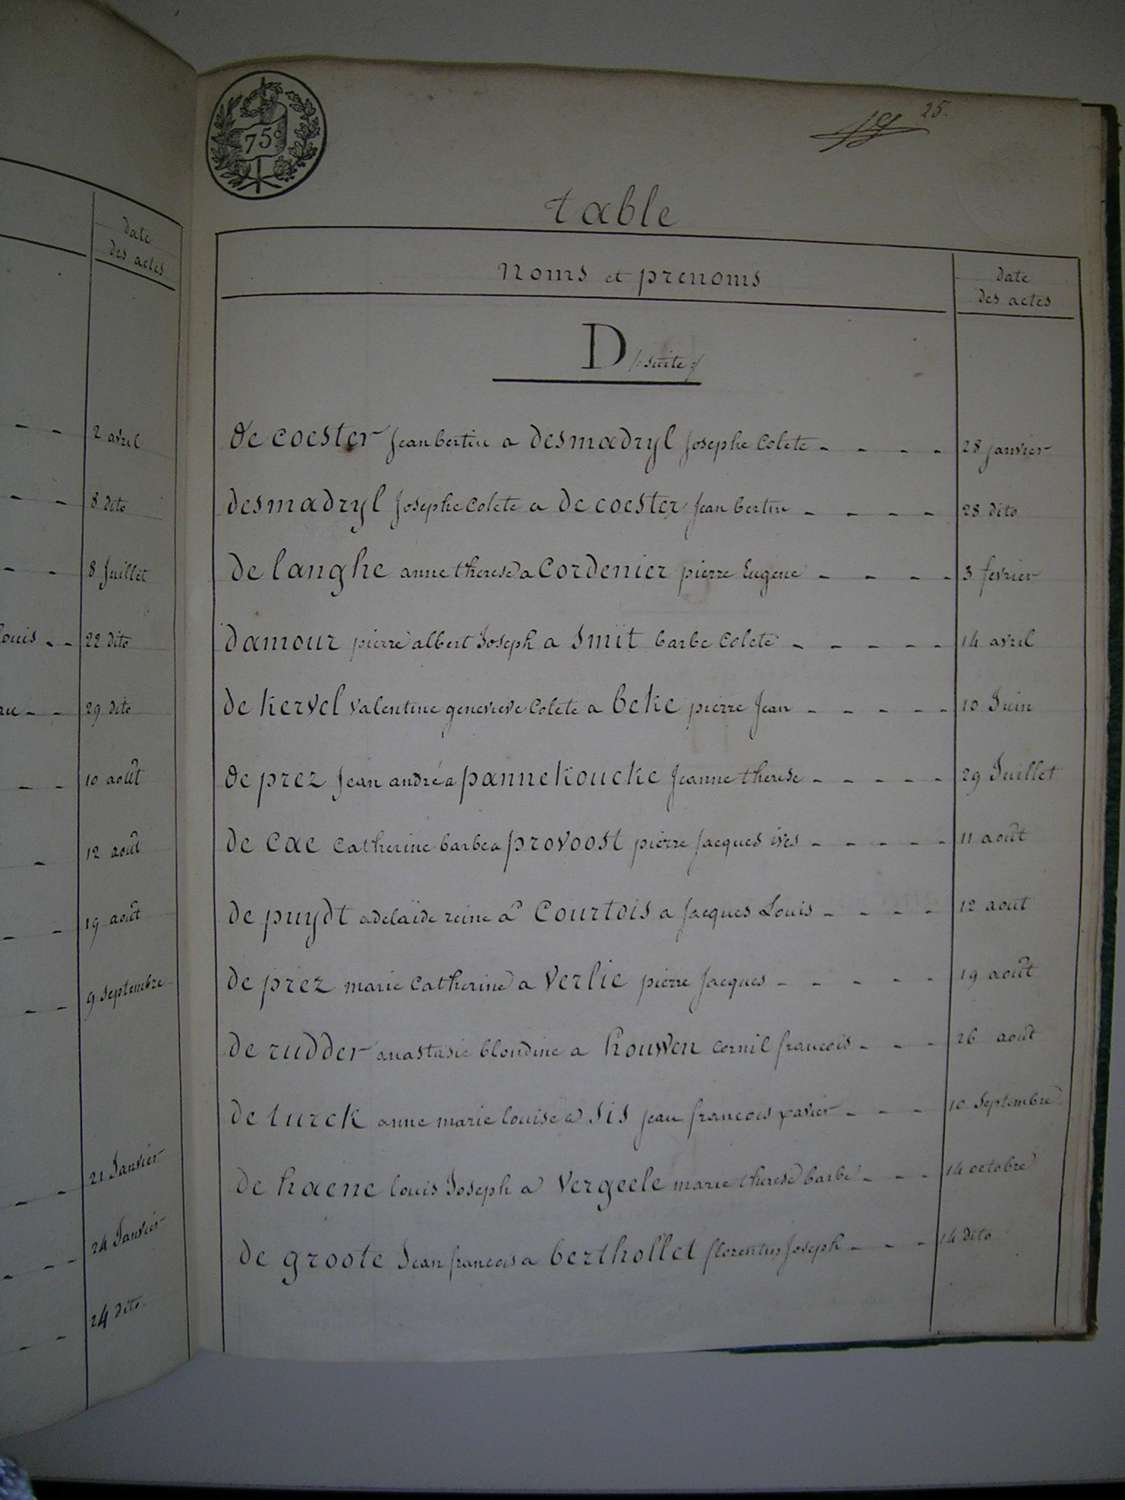 date
des actes
2 avril
8 dito
8 Juillet
louis - - 22 dito
29 dito
10 août
12 août
19 août
9 septembre
21 Janvier
24 Janvier
24 dito
75c
25.
table
noms et prenoms
date
des actes
D /: suite :/
de coester jean bertin a desmadryl josephe Colete - - - - 28 janvier
desmadryl josephe Colete a de coester jean bertin - - - - 28 dito
de langhe anne therese a Cordenier pierre Eugene - - - - 3 fevrier
damour pierre albert Joseph a Smit barbe Colete - - - - - 14 avril
de kervel valentine genevieve Colete a beke pierre Jean - - - - - 10 Juin
de prez Jean andré a pannekoucke Jeanne therese - - - - 29 Juillet
de Cae Catherine barbe a provoost pierre jacques ives - - - - - 11 août
de puydt adelaïde reine a Courtois a Jacques Louis - - - - 12 aout
de prez marie Catherine a Verlie pierre Jacques - - - - - 19 août
de rudder anastasie blondine a houwen cornil francois - - - 26 août
de turck anne marie louise a Sis jean francois xavier - - - 10 Septembre
de haene louis Joseph a Vergeele marie therese barbe - - - 14 octobre
de groote Jean francois a berthollet florentin Joseph - - - 14 dito